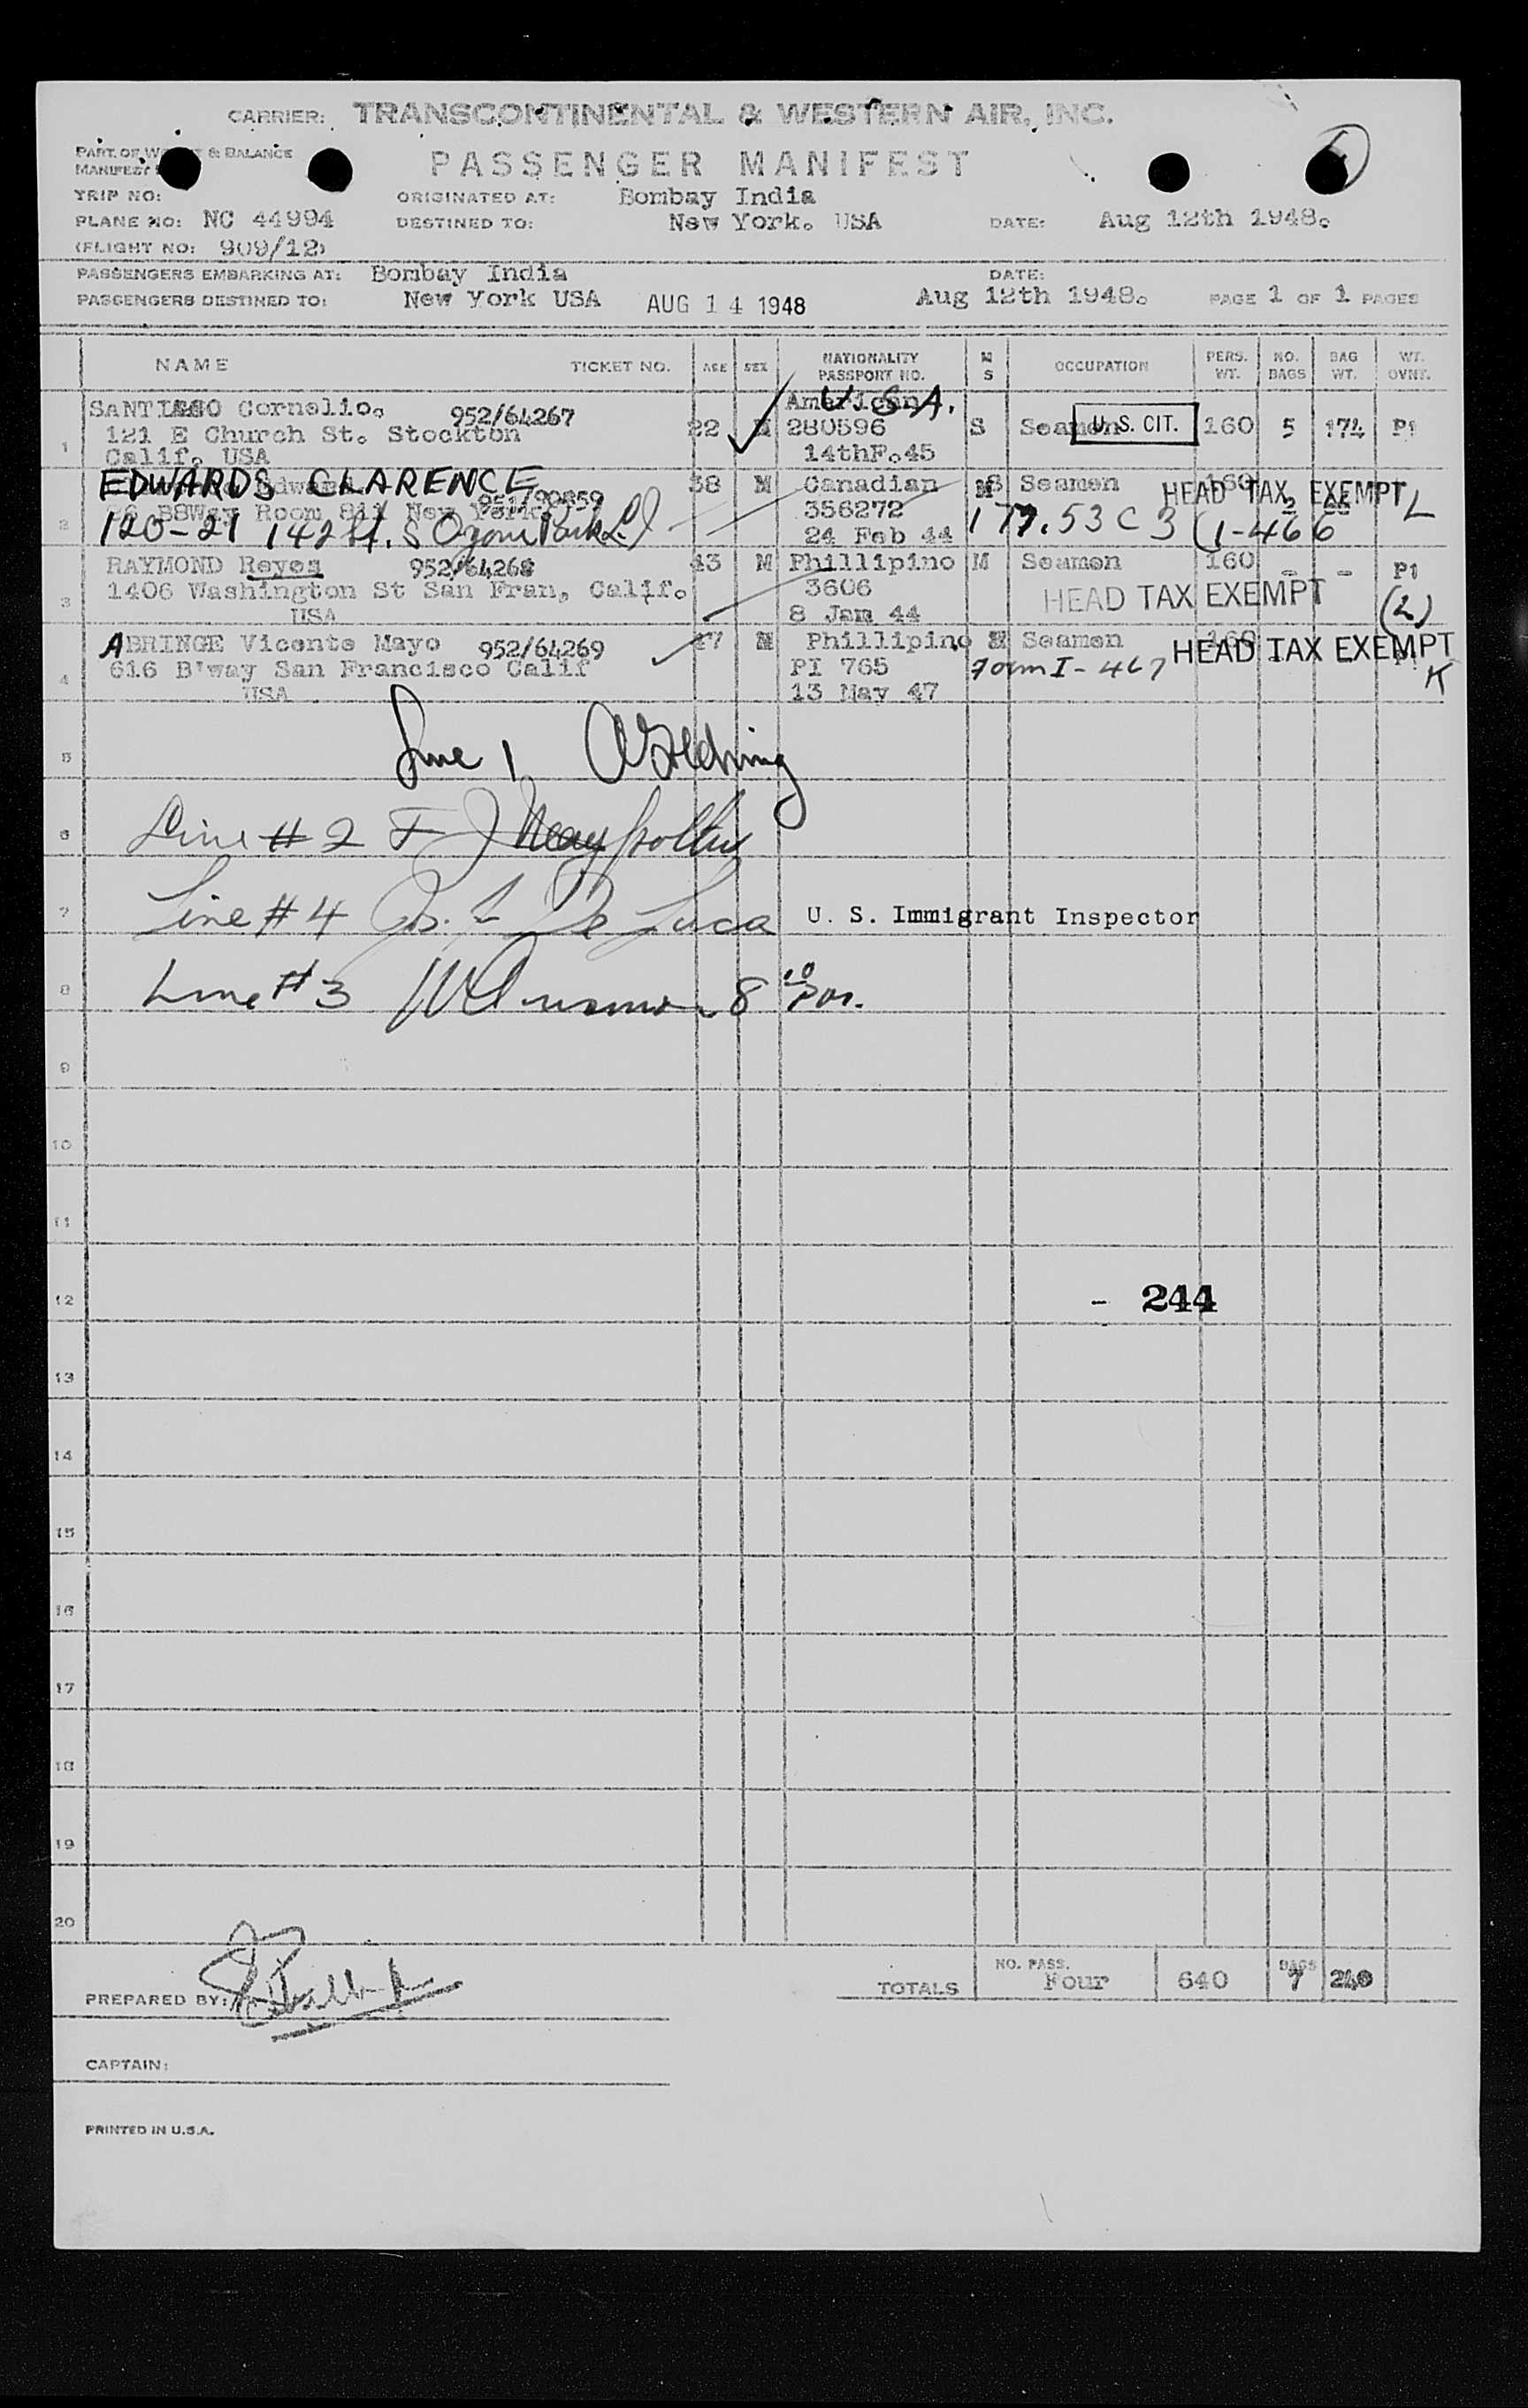 CARRIER: TRANSCONTINENTAL & WESTERN AIR, INC.
PART OF & BALANCE
MANIFEST
PASSENGER MANIFEST
TRIP NO:
ORIGINATED AT: Bombay India
PLANE NO: NC 44994
DESTINED TO: New York. USA
DATE: Aug 12th 1948.
(FLIGHT NO: 909/12)
PASSENGERS EMBARKING AT: Bombay India
DATE:
PASSENGERS DESTINED TO: New York USA AUG 14 1948 Aug 12th 1948. PAGE 1 OF 1 PAGES
NAME TICKET NO. AGE SEX NATIONALITY PASSPORT NO. M S OCCUPATION PERS. WT. NO. BAGS BAG WT. WT. OVNT.
U.S.A.
1 SANTIAGO Cornelio. 952/64267 22 M American S Seamen U.S. CIT. 160 5 174 P1
121 E Church St. Stockton 280596
Calif. USA 14thF.45
EDWARDS CLARENCE 951/90859 38 M Canadian S Seamen 160 HEAD TAX EXEMPT L
2 Room 811 New York 356272
120-21 142 St. S Ozone Park L.I 24 Feb 44 177.53 C 3 (1-466
RAYMOND Reyes 952/64268 43 M Phillipino M Seamen 160 - - P1
1406 Washington St San Fran, Calif. 3606 HEAD TAX EXEMPT (2)
3 USA 8 Jan 44
ABRINGE Vicente Mayo 952/64269 47 M Phillipino M Seamen 160 HEAD TAX EXEMPT
616 B'way San Francisco Calif PI 765 Form I-467 K
4 USA 13 May 47
5 Line 1,
6 Line #2 F J
7 Line #4 De Luca U. S. Immigrant Inspector
8 Line #3
9
10
11
12 - 244
13
14
15
16
17
18
19
20
PREPARED BY:
TOTALS NO. PASS. Four 640 BAGS 7 240
CAPTAIN:
PRINTED IN U.S.A.